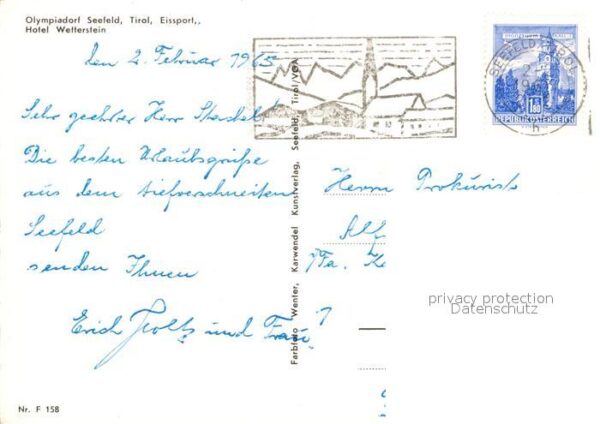 Olympiadorf Seefeld, Tirol, Eissport,,
Hotel Wetterstein
den 2. Februar 1965
Sehr geehrter Herr
Die besten Urlaubsgrüße
aus dem tiefverschneiten
Seefeld
senden Ihnen
Erich und Frau
Farbfoto Wenter, Karwendel Kunstverlag, Seefeld, Tirol/VGA
SEEFELD TIROL
h
1.80
REPUBLIK ÖSTERREICH
Herrn Prokurist
Alf
Fa. Ke
privacy protection
Datenschutz
Nr. F 158